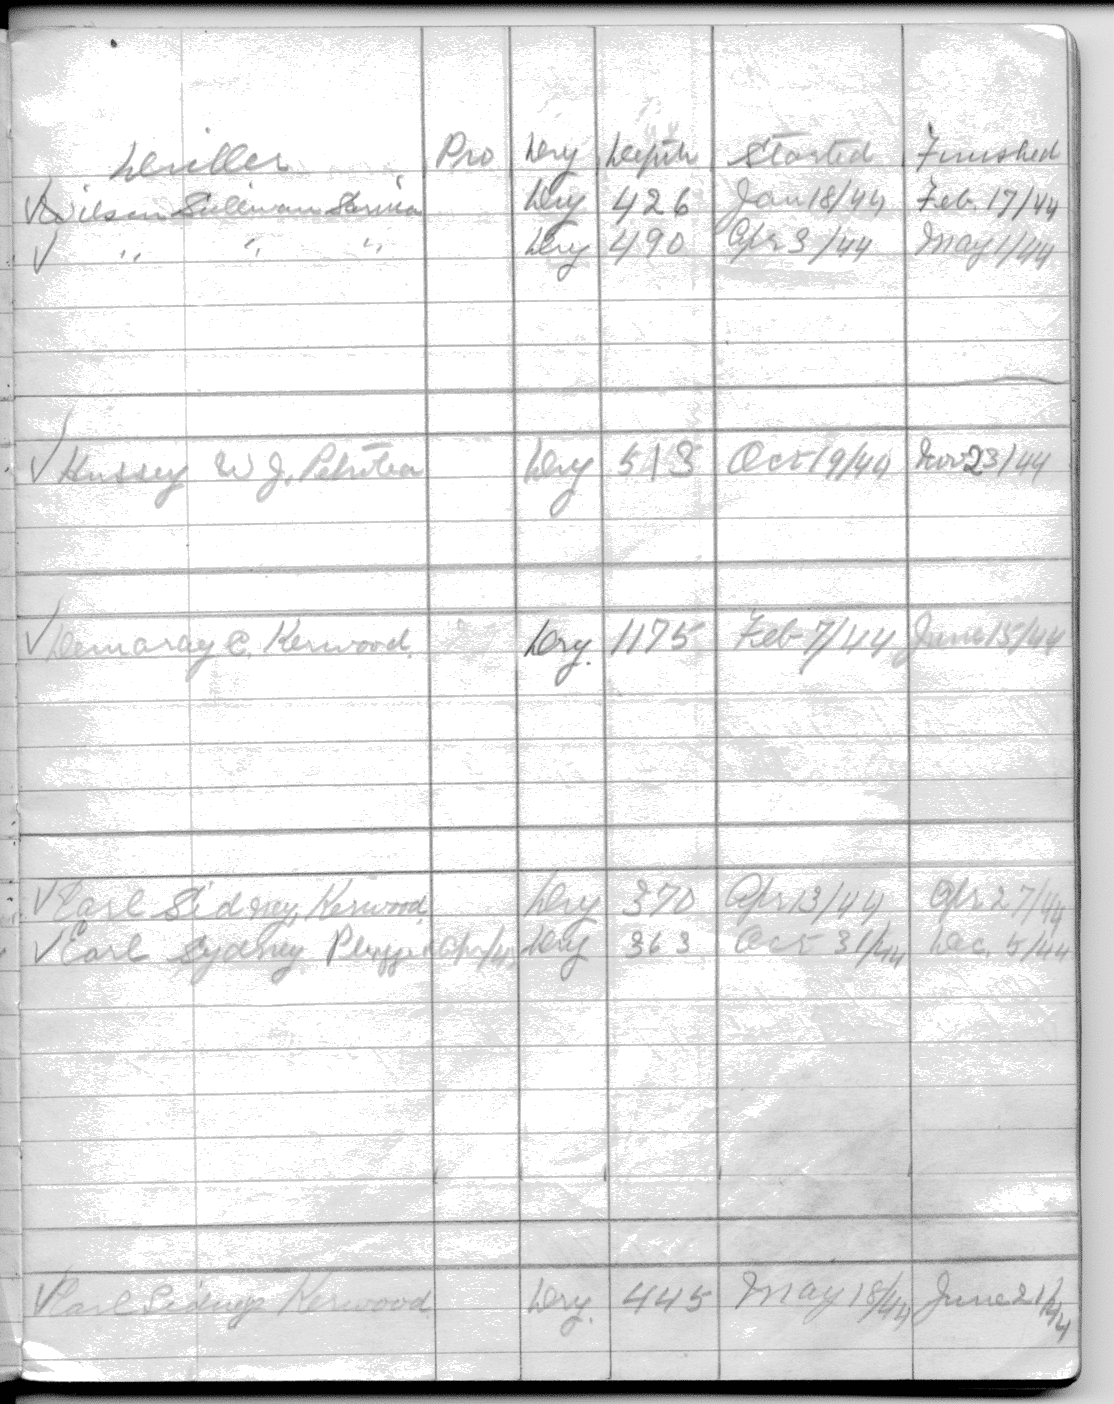 Driller Pro Dry Depth Started Finished
✓ Wilson Sullivan Sarnia Dry 426 Jan 18/44 Feb. 17/44
✓ " " " Dry 490 Apr 3/44 May 1/44
✓ Hussey W J. Petrolea Dry 513 Oct 19/44 Nov 23/44
✓ Demaray C. Kerwood. Dry. 1175 Feb 7/44 June 15/44
✓ Earl Sidney Kerwood Dry 370 Apr 13/44 Apr 27/44
✓ Earl Sydney Dry 363 Oct 31/44 Dec. 5/44
✓ Earl Sidney Kerwood Dry. 445 May 18/44 June 21/44